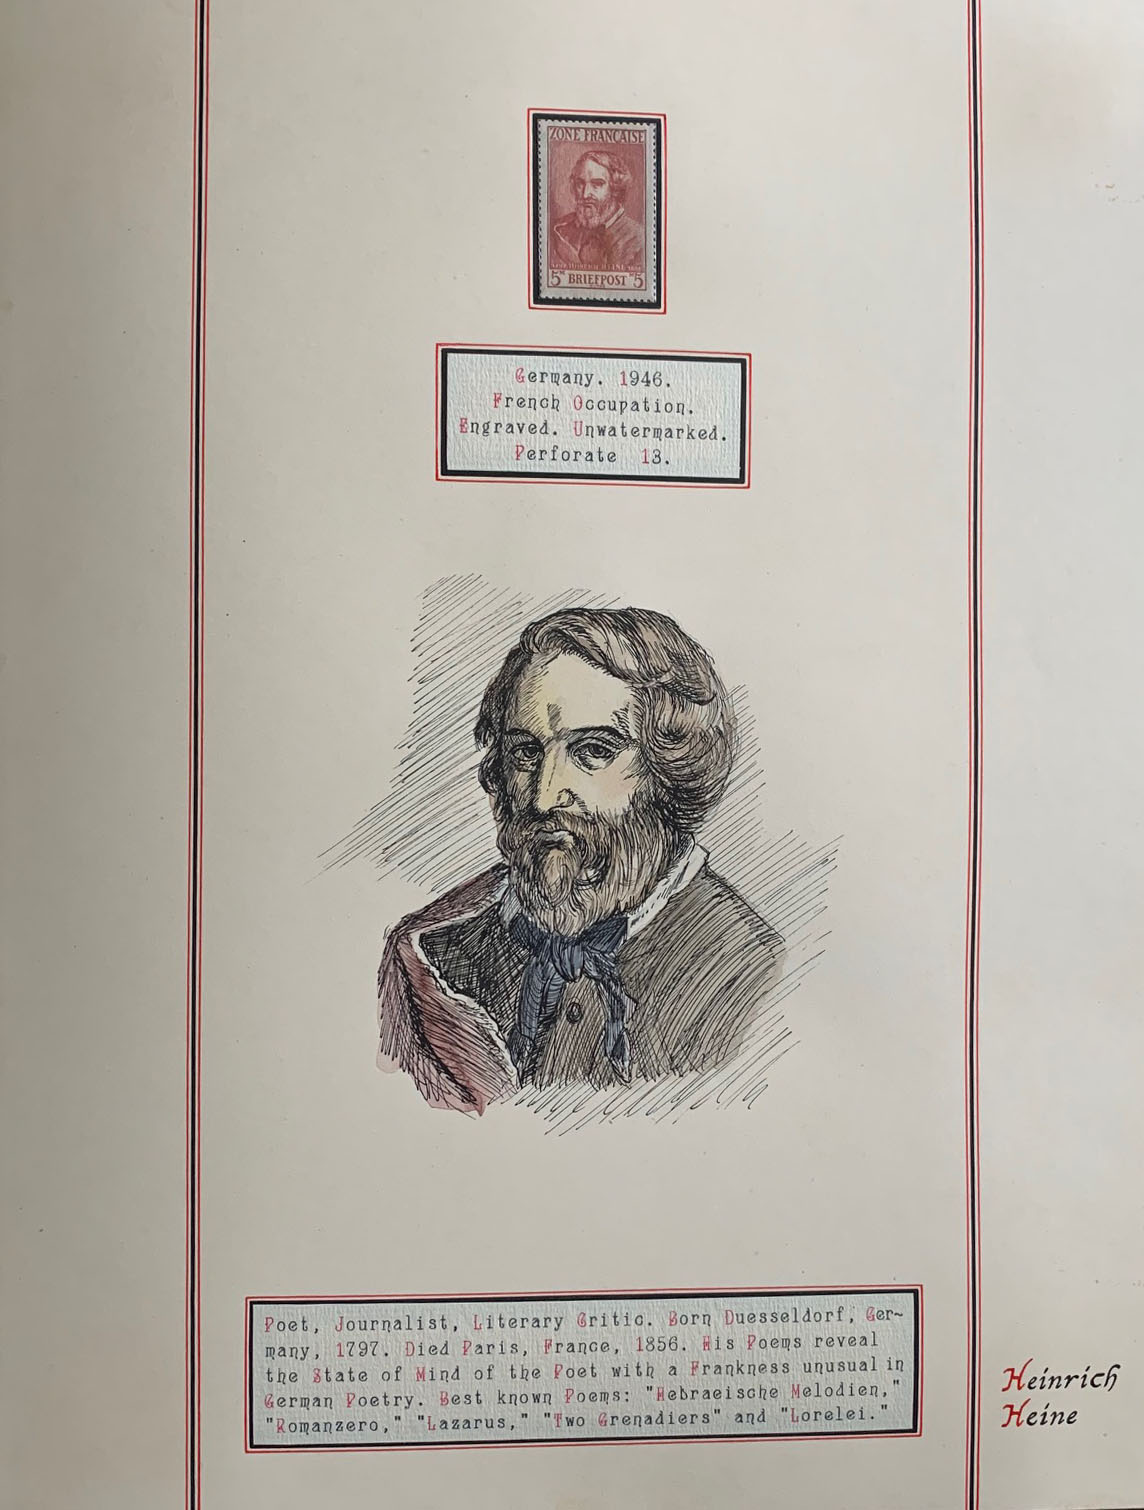 ZONE FRANCAISE
5M BRIEFPOST M5
Germany. 1946.
French Occupation.
Engraved. Unwatermarked.
Perforate 13.
Poet, Journalist, Literary Critic. Born Duesseldorf, Ger~
many, 1797. Died Paris, France, 1856. His Poems reveal
the State of Mind of the Poet with a Frankness unusual in
German Poetry. Best known Poems: "Hebraeische Melodien,"
"Romanzero," "Lazarus," "Two Grenadiers" and "Lorelei."
Heinrich
Heine